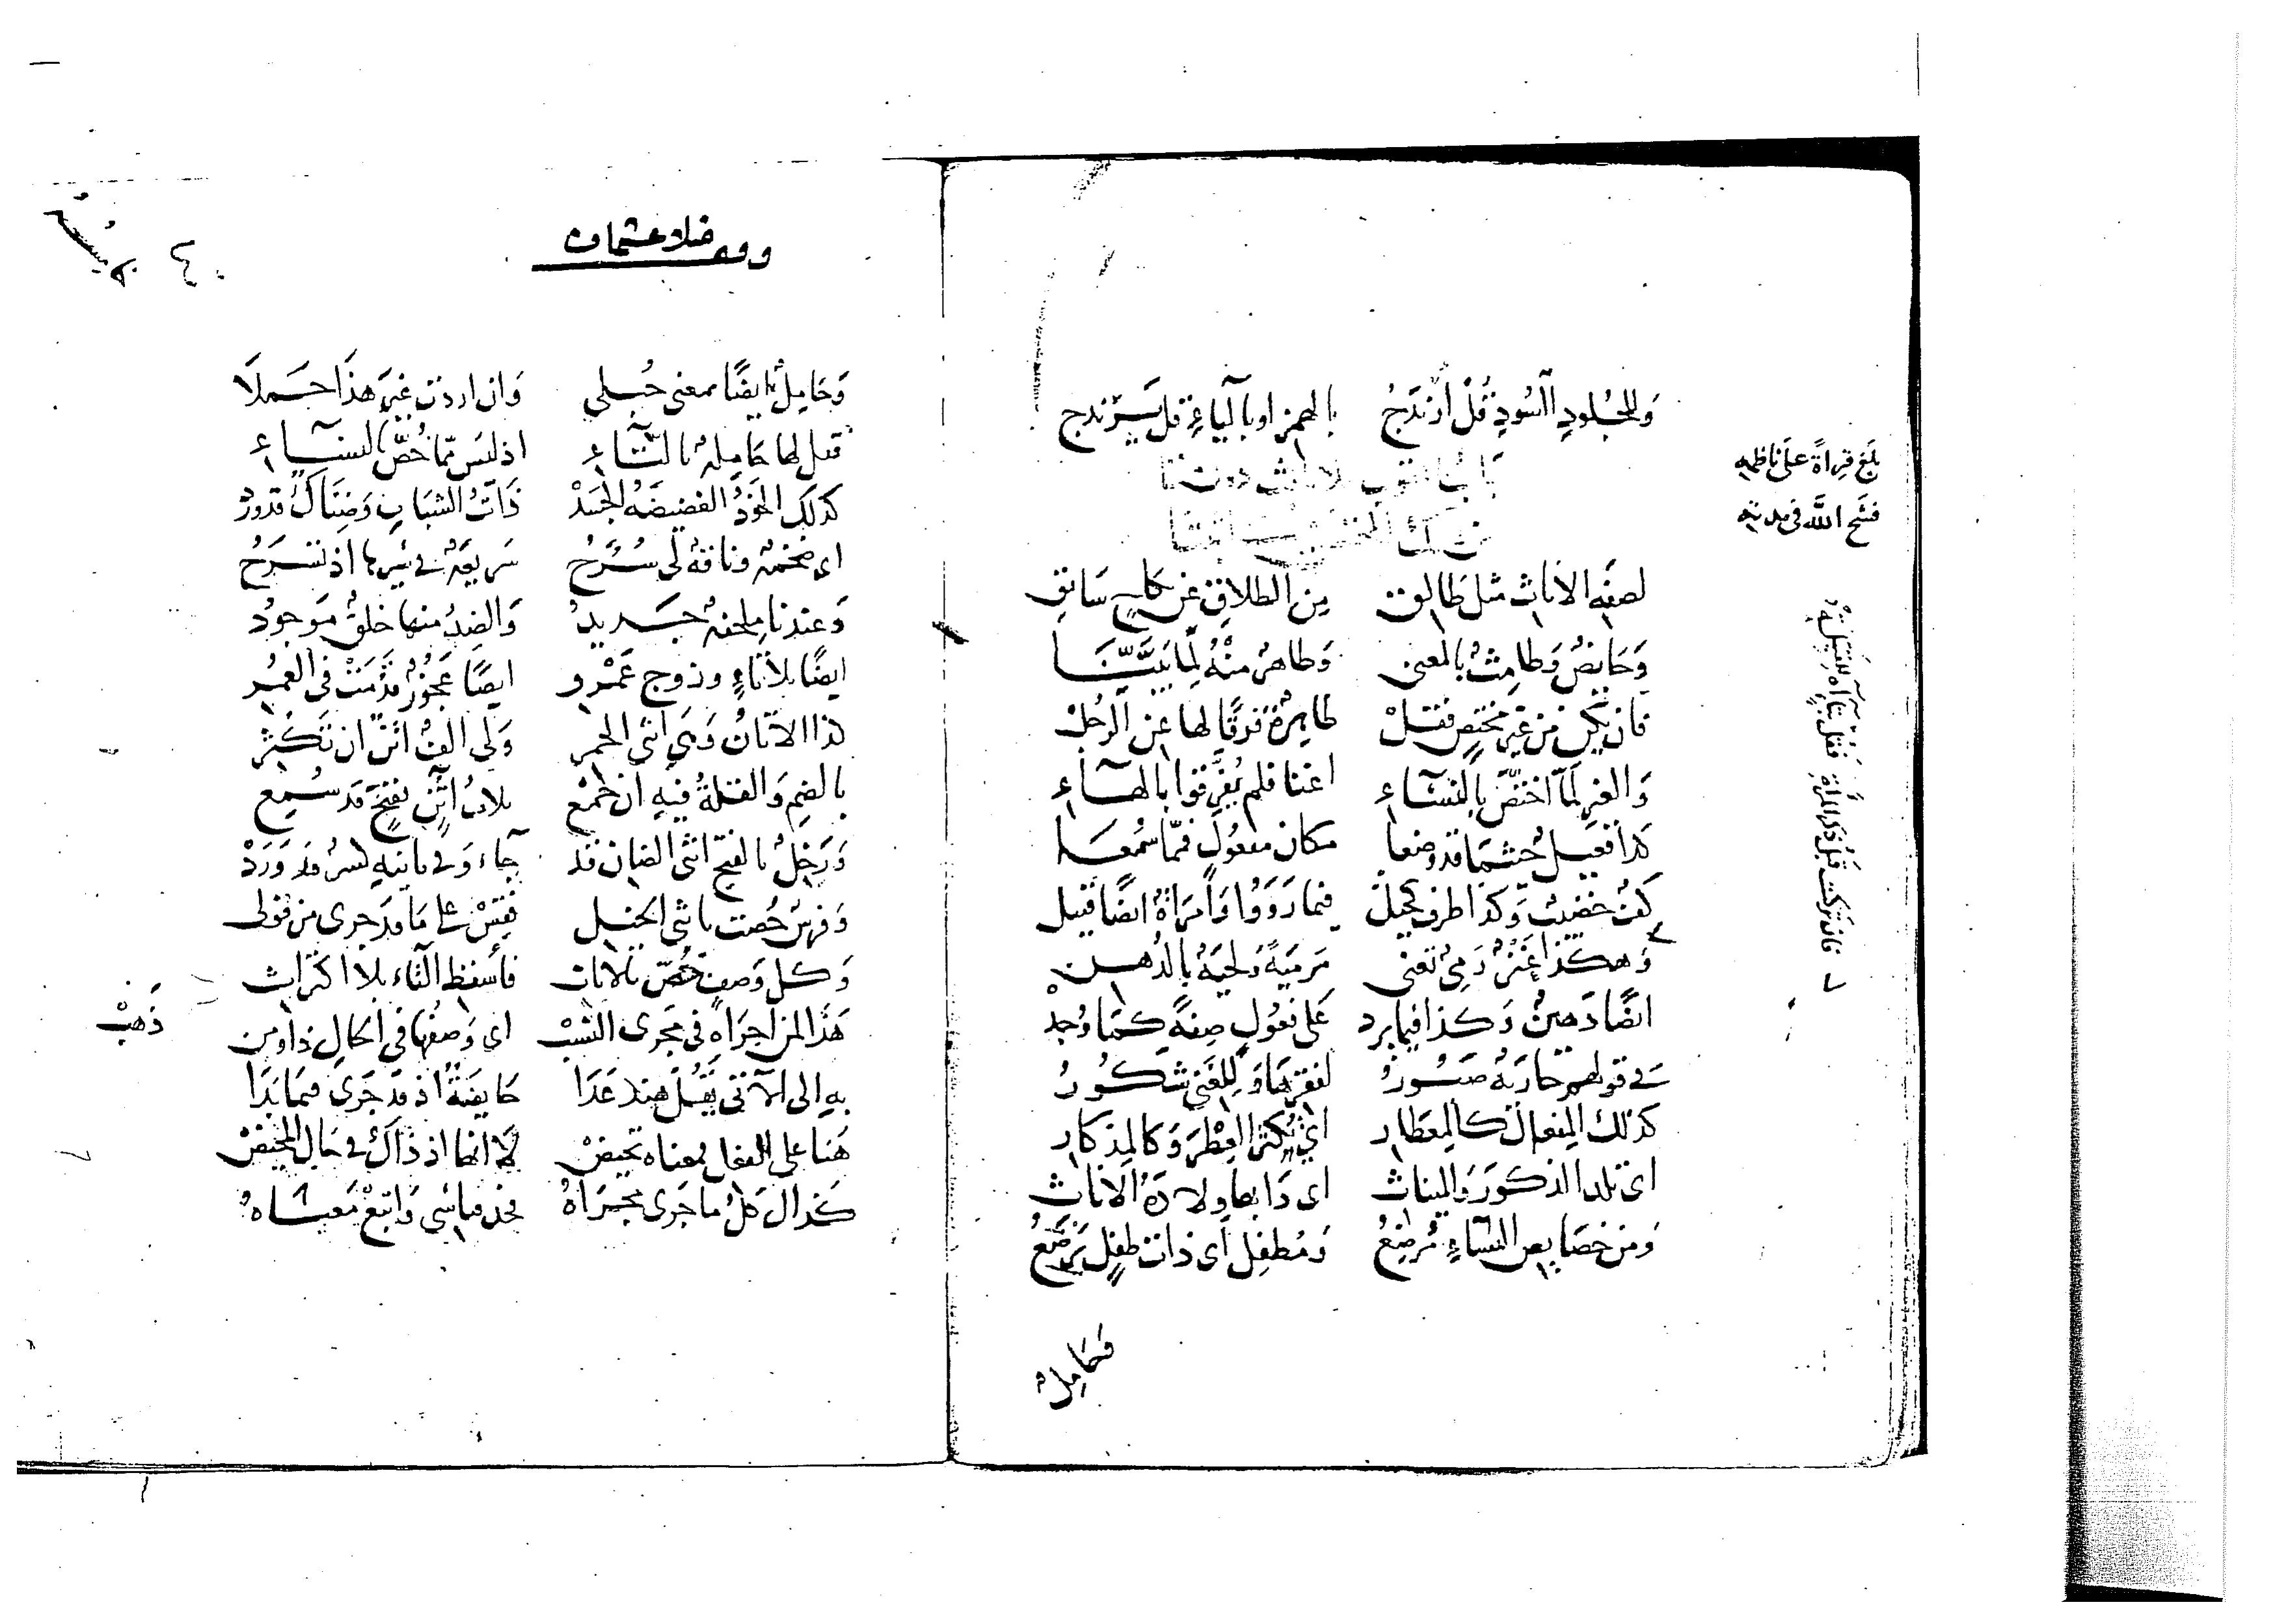 وَللجُلودِ السُودِ قُلْ أرَنْدَجُ بالهمز او بالياءِ قل يَرَنْدج
باب ما يقال للاناث دون
لصفه الاناث مثل طالق مِن الطلاقِ عن كلامٍ سَابق
وَحَايضٌ وَطامِثٌ بالمعنى وَطاهرٌ منْهُ لِمَا تبَيَّنَا
فان تكن من غير مختصٍ فقلْ طاهِرةٌ فرقًا لها عن الرجُلْ
وَالغير لمّا اختصَّ بالنسَاءِ اغنا فلم يُفرِّقوا بالهاءِ
كذا فَعِيلٌ حيثما قد وضعا مكان مفعُولٍ فمّا سُمعَا
كفٌ خضيبٌ وكذا طرف كحِيلْ فيما رَوَوْا وَامرَاةٌ ايضًا قتيل
وَهكذا عَنْزٌ رَمىٌ تعنى مَرميّةً وَلحيَةٌ بالدُهن
ايضًا دَهينٌ وَكذا فيما يرد عَلى فعُولٍ صِفةً كما وُجدْ
فى قولهم جَاريَةٌ صَبُورٌ لفقرِهَا وَلِلغَنِي شكُورُ
كذلك المِفعال كالمِعطار اى تُكثر العِطْرَ وَكالمِذكار
اى تلد الذكورَ وَالميناث اى دَابها ولادَةُ الاناث
وَمن خصَايص النسَاءِ مُرضِعُ وَمُطفِل اى ذات طفلٍ يَرضَعُ
فحَامِلٌ
بلغ قِراةً على ناظمِه
فسَح الله فى مدته
فان تركت قبلُ ذكر المرأةِ فقل قتيلة
وقف ملا عثمان
٤٠
وَحَامِلٌ ايضًا بمعنى حُبلى وَان اردت غيرَ هذا حَملَا
فقل لها حَامِلةٌ بالتاءِ اذ ليسَ ممّا خُصَّ بالنسَاءِ
كذلك الخَوْدُ الغضيضَهُ الجَسَدْ ذاتُ الشبَابِ وَضِنَاكٌ قد وردْ
اى ضخمةٌ وناقةٌ لى سُرُحُ سَريعَةٌ فى سَيرها اذ تسْرَحُ
وَعندنا مِلحفةٌ جَديدُ وَالضدُ منها خلقٌ مَوجُودُ
ايضًا بلا تاءٍ وزوج عَمْرو ايضًا عَجُوزٌ قدُمَتْ فى العُمرِ
كذا الاتانُ وَهى انثى الحمر وَلى الفٌ اتنٌ ان تكثر
بالضم وَالقلةُ فيهِ ان جُمع بلا الف اتْنٍ بفتحٍ قد سُمِع
وَرَخِلٌ بالفتح انثى الضان قد جآء وَفى ثانيهِ كسرٌ قد وَرَدْ
وَفرسٌ خُصت بانثى الخيل فقِسْ على مَا قد جرى من قولى
وَكل وَصفٍ خُصّ بالاناث فأسقط التاء بلا اكتراث
هَذا لمن اجرَاه فى مَجرى النسَبْ اى وَصفها فى الحالِ ذا ومن ذَهَبْ
بهِ الى الآتى يَقُلْ هند غَدَا حَايضَةٌ اذ قد جَرى فيما بَدَا
هَنا على الفعل لمعناه تحيضْ لا انها اذ ذاك فى حَال المحيضْ
كذاك كلُ ما جرى مجرَاهُ فخذ قياسى وَاتبعْ مَعناهُ